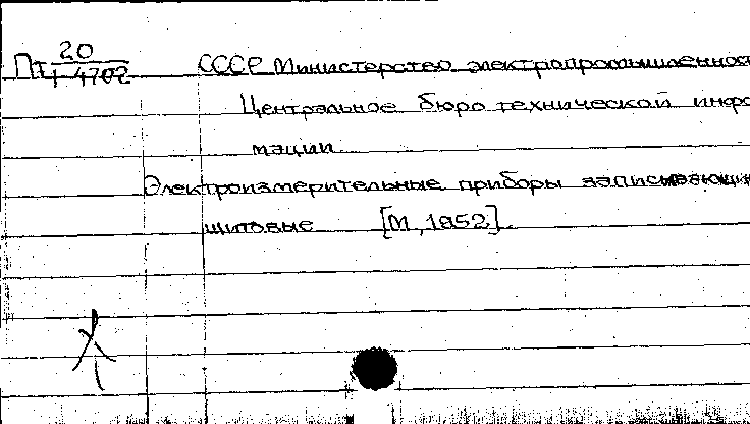 Пт 20/1-4702 СССР Министерство электропромышленнос
Центральное бюро технической инфо
мации
Электроизмерительные приборы записывающи
щитовые [М, 1952].